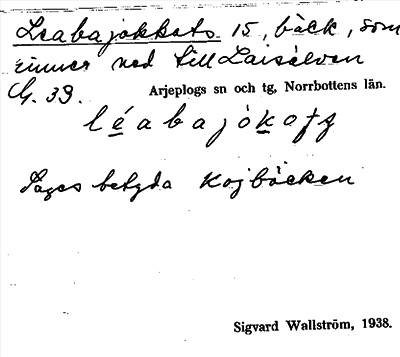 Leabajåkkåts 15, bäck, som
rinner ned till Laisälven
G. 39.
Arjeplogs sn och tg, Norrbottens län.
léabajòkaţʒ
Sages betyda Kojbäcken
Sigvard Wallström, 1938.